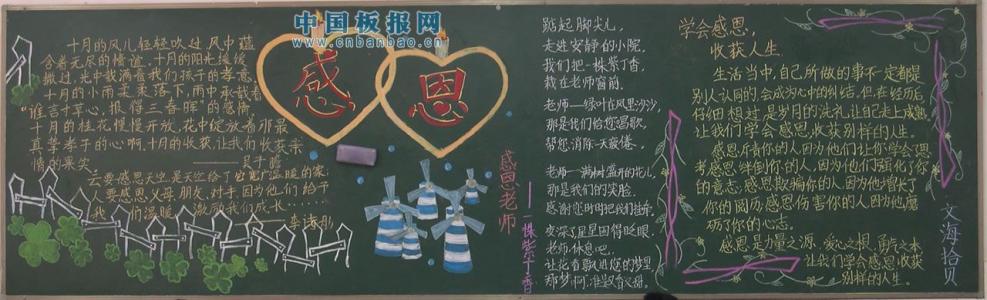 中国板报网
www.cnbanbao.cn
十月的风儿轻轻吹过,风中蕴
含着无尽的情谊,十月的阳光缓缓
撒过,光中载满着我们孩子的孝意,
十月的小雨柔柔落下,雨中承载着
“谁言寸草心,报得三春晖”的感情,
十月的桂花慢慢开放,花中绽放着那最
真挚孝子的心啊,十月的收获,让我们收获亲
情的果实。
要感恩天空,是天空给了它宽广温暖的家
要感恩父母,朋友,对手因为他们给予
我们温暖,激励我们成长
感
恩
感恩老师
——一株紫丁香
踮起脚尖儿,
走进安静的小院,
我们把一株紫丁香,
栽在老师窗前。
老师——绿叶在风里沙沙,
那是我们给您唱歌,
帮您消除一天疲倦。
老师——满树盛开的花儿,
那是我们的笑脸,
感谢您时时把我们挂牵。
夜深了星星困得眨眼,
老师,休息吧。
让花香飘进您的梦里,
那梦啊,准又香又甜。
学会感恩,
收获人生,
生活当中,自己所做的事不一定都是
别人认同的,会成为心中的纠结,但,在经历后
仔细想过是岁月的洗礼,让自己走上成熟
让我们学会感恩,收获别样的人生。
感恩斥责你的人因为他们让你学会思
考感恩绊倒你的人,因为他们强化了你
的意志,感恩欺骗你的人因为他增长了
你的阅历,感恩伤害你的人因为他磨
动了你的心志。
感恩是力量之源,爱心之根,勇气之本
让我们学会感恩收获
别样的人生
文海拾贝